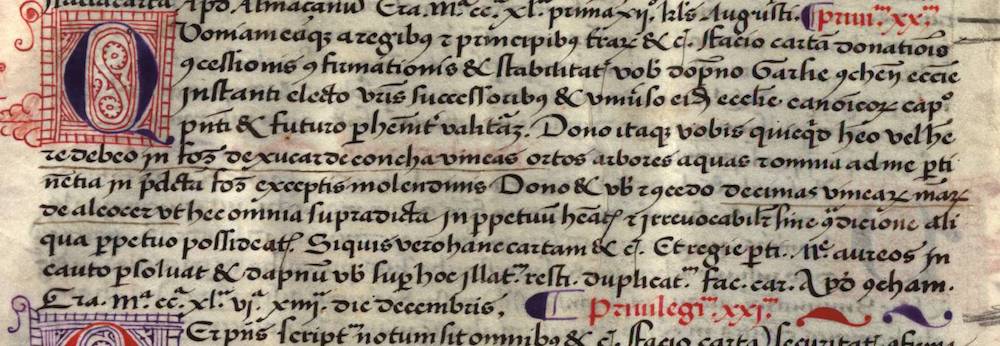 Apđ Almacanũ Era. Mª. ccª. xlª. prima xijº. kłs Augusti. Priui.ᵐ xx.ᵐ
Quoniam eaqꝫ a regibꝰ ⁊ principibꝰ & c̃. facio cartã donationis
ꝯcessionis ꝯfirmationis & stabilitat̃ vob̃ dopno Garsie ꝯcheñ eccĩe
instanti electo vr̃is successoribꝰ & vniũso eiđ eccłie canoicoꝝ capº
p̃nti & futuro ꝑhenit̃ valitãꝝ. Dono itaqꝫ vobis quicqđ heo vel he
re debeo in foꝫ de xucar de concha vineas ortos arbores aquas ⁊ omnia ad me ꝑti
nẽtia in p̃dcta foꝫ exceptis molendinis Dono & vb̃ ⁊ ꝯcedo decimas vineaꝝ mãꝝ
de alcocer vt hec omnia supradicta in ꝑpetuũ heat̃ ⁊ irreuocabilr̃ sine ꝯdicione ali
qua ꝑpetuo possideat̃. Siquis vero hanc cartam & c̃. Et regie ꝑti. Mº. aureos in
cauto ꝑsoluat & dapnũ vb̃ suꝑ hoc illat.ᵐ resti. duplicat.ᵐ fac. car. Apđ ꝯcham.
Era. Mª. ccª. xlª. viª. xiiijª. die decembris. Priuilegi.ᵐ xxi.ᵐ
Er p̃ñs script.ᵐ notum sit omnibꝰ & c̃. facio cartã securitat̃